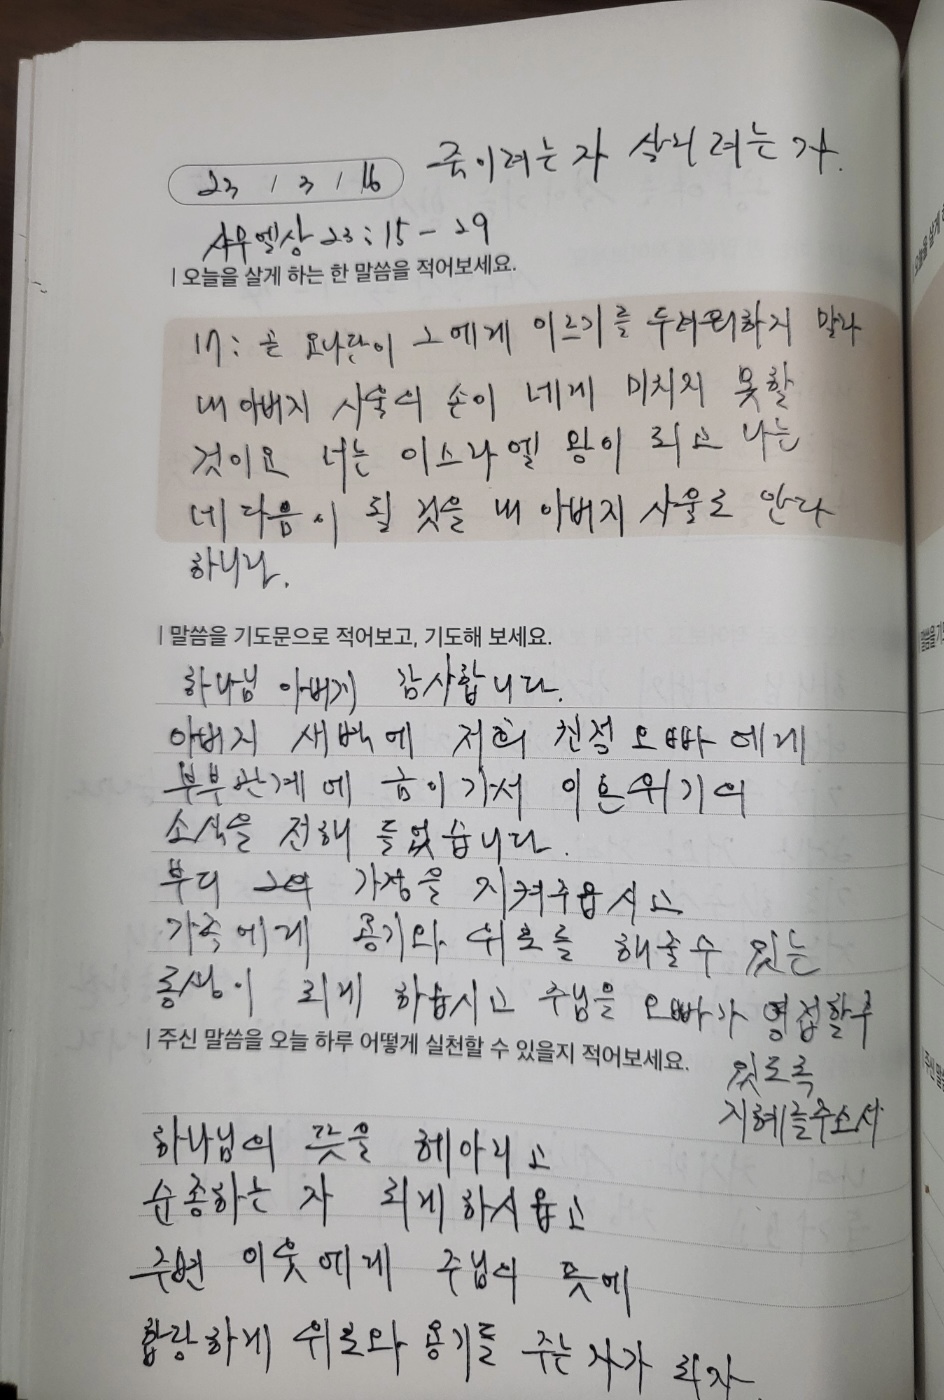 23 / 3 / 16 죽이려는자 살리려는자.
사무엘상 23:15-29
| 오늘을 살게 하는 한 말씀을 적어보세요.
17: 곧 요나단이 그에게 이르기를 두려워하지 말라
내 아버지 사울의 손이 네게 미치지 못할
것이요 너는 이스라엘 왕이 되고 나는
네 다음이 될 것을 내 아버지 사울도 안다
하니라.
| 말씀을 기도문으로 적어보고, 기도해 보세요.
하나님 아버지 감사합니다.
아버지 새벽에 저희 친정오빠에게
부부관계에 금이가서 이혼위기의
소식을 전해 들었습니다.
부디 그의 가정을 지켜주옵시고
가족에게 용기와 위로를 해줄수 있는
동생이 되게 하옵시고 주님을 오빠가 영접할수
있도록
지혜를주소서
| 주신 말씀을 오늘 하루 어떻게 실천할 수 있을지 적어보세요.
하나님의 뜻을 헤아리고
순종하는 자 되게하시옵고
주변 이웃에게 주님의 뜻에
합당하게 위로와 용기를 주는자가 되자.